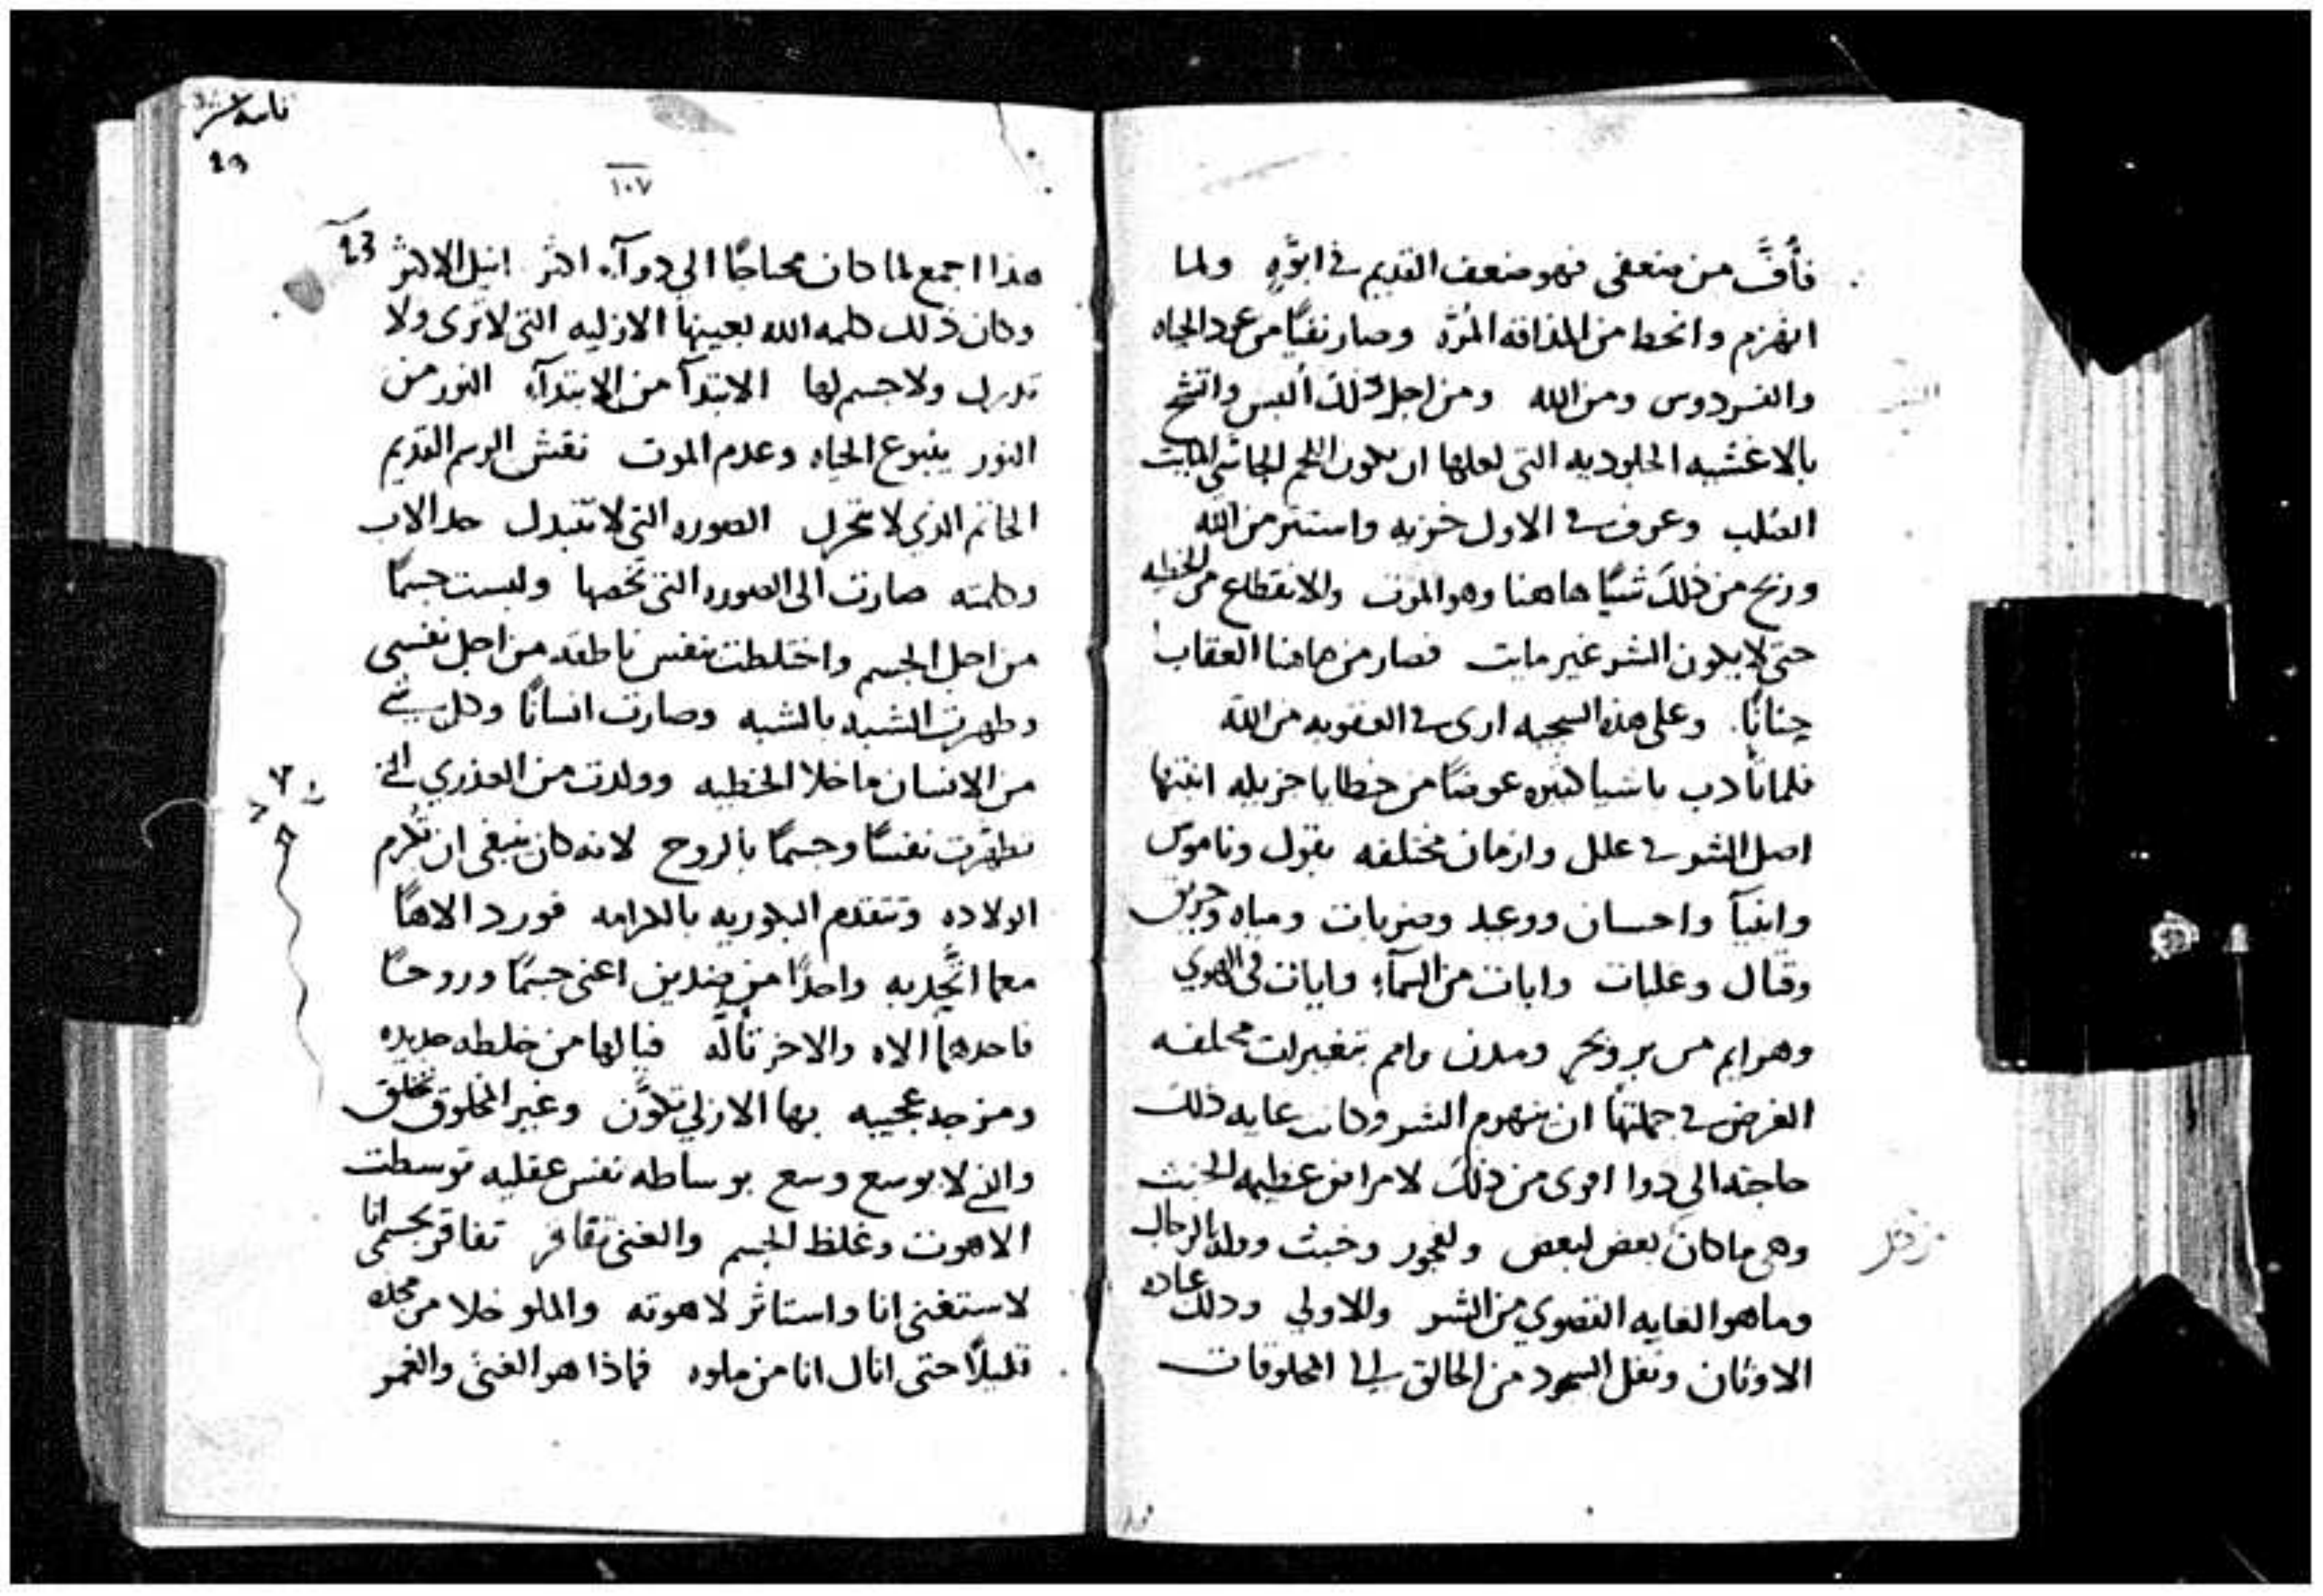 فأفَّ من ضعفى فهو ضعف القديم في ابوَّهِ ولما
انهزم وانحط من المذاقه المُرَّه وصار نفيًا من عود الحياه
والفردوس ومن الله ومن اجل ذلك ألبس واتشح
بالاغشيه الجلوديه التى لعلها ان تكون اللحم الجاشي المايت
الصُلب وعرف في الاول خزيه واستتر من الله
وربح من ذلك شيًا هاهنا وهو الموت والانقطاع من الخطيه
حتى لا يكون الشر غير مايت فصار من هاهنا العقاب
حنانًا. وعلى هذه السجيه ارى في العقوبه من الله
فلما تأدب باشيا كثيره عوضًا من خطايا جزيله انبتها
اصل الشر في علل وازمان مختلفه بقول وناموس
وانبيآ واحسان ووعيد وضربات ومياه وحريق
وقتال وغلبات وايات من السمآءِ وايات فى الهوي
وهوايم من بر وبحر ومدن وامم بتغييرات مختلفه
الغرض في جملتها ان ينهزم الشر وكانت غايه ذلك
حاجته الى دوا اقوى من ذلك لامراض عظيمه الخبث
وهى ما كان بعض لبعض ولفجور وخبث وولد بالرجال
وما هو الغايه القصوي من الشر والاولي وذلك عباده
الاوثان ونقل السجود من الخالق الى المخلوقات
١٠٧
23
هذا اجمع لما كان محتاجًا الى دوآءٍ اكثر انيل الاكثر
وكان ذلك كلمه الله بعينها الازليه التى لا تُرى ولا
تدرك ولا جسم لها الابتدآ من الابتدآءِ النور من
النور ينبوع الحياه وعدم الموت نقش الرسم القديم
الخاتم الذي لا يتحرك الصوره التى لا تتبدل حد الاب
وكلمته صارت الى الصوره التى تخصها ولبست جسمًا
من اجل الجسم واختلطت بنفس ناطقه من اجل نفسى
وطهرت الشبه بالشبه وصارت انسانًا وكل شي
من الانسان ما خلا الخطيه وولدت من العذري التي
تطهرت نفسًا وجسمًا بالروح لانه كان ينبغى ان تُكرم
الولاده وتتقدم البكوريه بالكرامه فورد الاهًا
معما اتَّحد به واحدًا من ضدين اعنى جسمًا وروحًا
فاحدهما الاه والاخر تألَّه فيا لها من خلطه جديده
ومزجه عجيبه بها الازلي تكوَّن وغير المخلوق تخلق
والذي لا يوسع وسع بوساطه نفس عقليه توسطت
الاهوت وغلظ الجسم والغنى تفاقر تفاقر بجسمى انا
لاستغنى انا واستاثر لاهوته والملو خلا من مجده
قليلاً حتى انال انا من ملوه فماذا هو الغنى والغمر